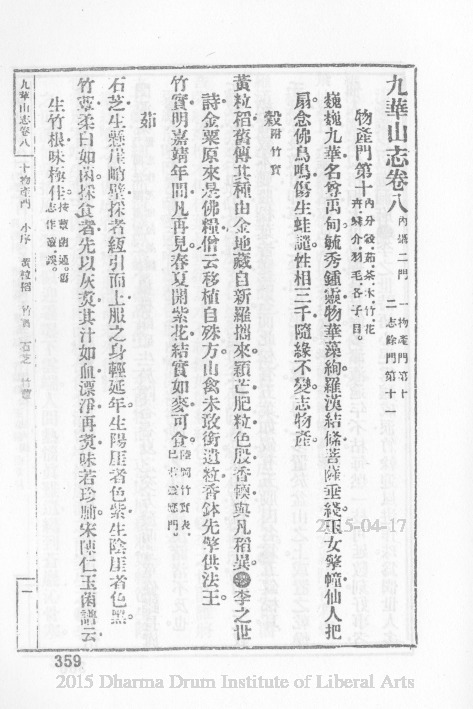 九華山志卷八 內攝二門 一物產門第十 二志餘門第十一
物產門第十 內分穀、茹、茶、木、竹、花、卉、蘇、介、羽、毛、各子目。
巍巍九華。名尊禹甸。毓秀鍾靈。物華藻絢。羅漢結絛。菩薩垂綫。玉女擎幢。仙人把
扇。念佛鳥鳴。傷生蛙譴。性相三千。隨緣不變。志物產。
穀 附竹實
黃粒稻。舊傳其種由金地藏自新羅攜來。穎芒肥。粒色殷。香輭與凡稻異。李之世
詩。金粟原來是佛糧。僧云移植自殊方。山禽未敢銜遺粒。香鉢先擎供法王。
竹實。明嘉靖年間。凡再見。春夏開紫花。結實如麥。可食。
茹
石芝。生懸崖峭壁。採者緪引而上。服之身輕延年。生陽厓者色紫。生陰厓者色黑。
竹蕈。柔白如菌。採食者。先以灰煑其汁如血。漂淨再煑。味若珍腴。宋陳仁玉菌譜云。
生竹根。味極佳。
九華山志卷八 十物產門 小序 黃粒稻 竹實 石芝 竹蕈 一
359
2015-04-17
2015 Dharma Drum Institute of Liberal Arts